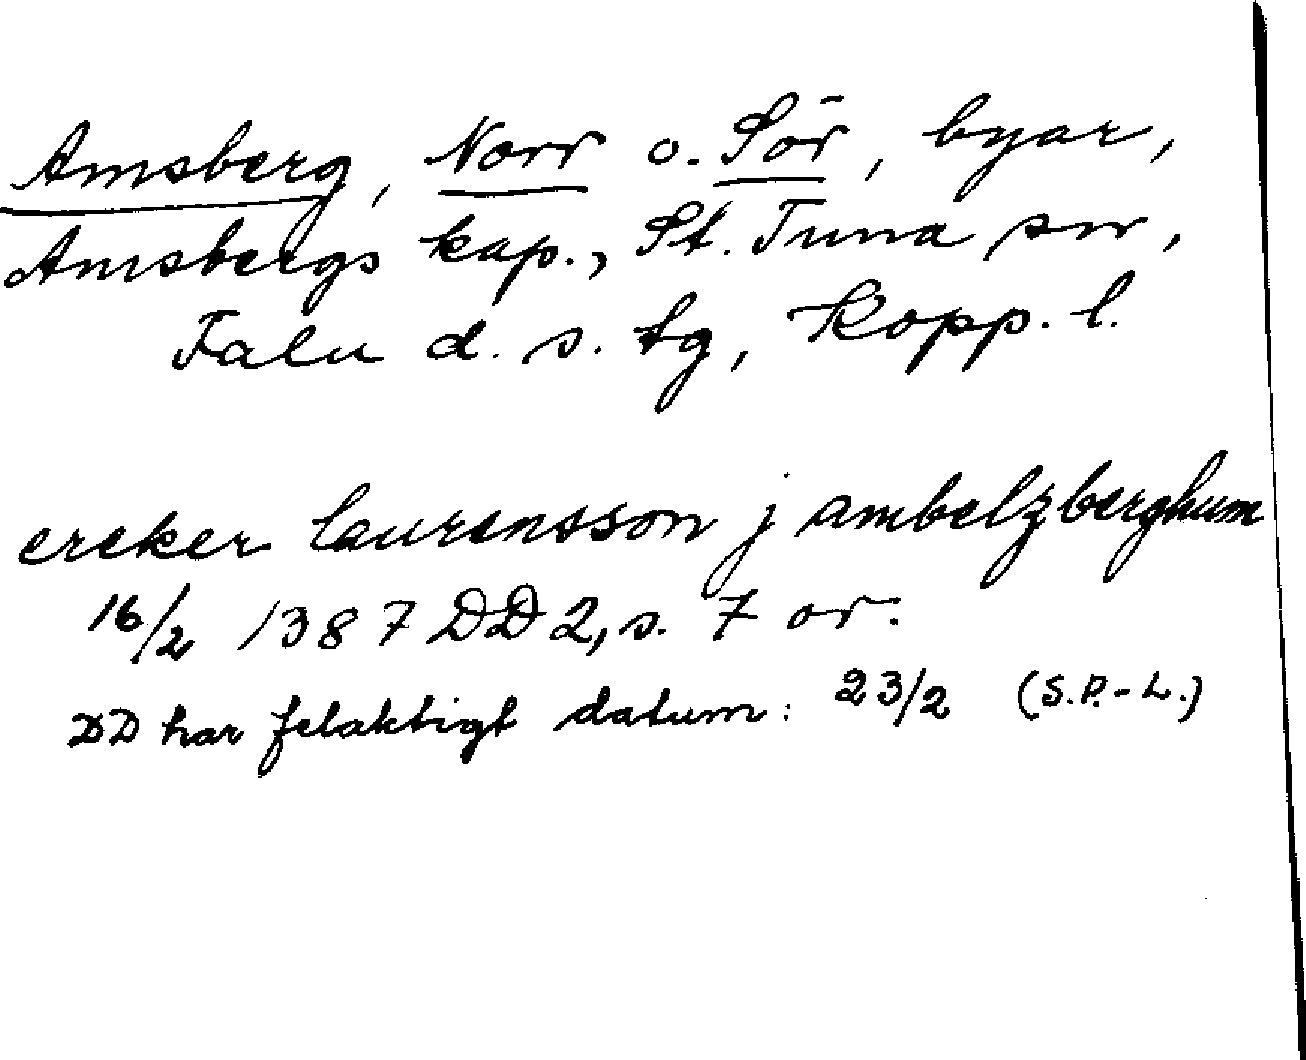 Amsberg, Norr o. Sör, byar,
Amsbergs kap., St. Tuna sn,
Falu d. s. tg, Kopp. l.
ereker laurensson j ambelzberghum
16/2 1387 DD 2, s. 7 or.
DD har felaktigt datum: 23/2 (S.P.-L.)